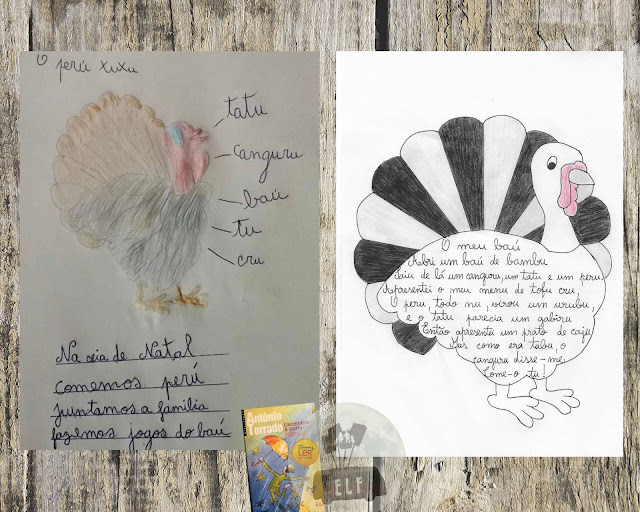 O perú xuxu
tatu
canguru
baú
tu
cru
Na ceia de Natal
comemos perú
Juntamos a família
fazemos jogos do baú
O meu baú
Abri um baú de bambu
Saiu de lá um canguru, um tatu e um peru,
Apresentei o meu menu de tofu cru,
O peru, todo nu, virou um urubu,
e o tatu parecia um gabiru
Então apresentei um prato de caju
Mas como era tabu, o
canguru disse-me:
Come-o tu!
António
Torrado
Ler
ELF